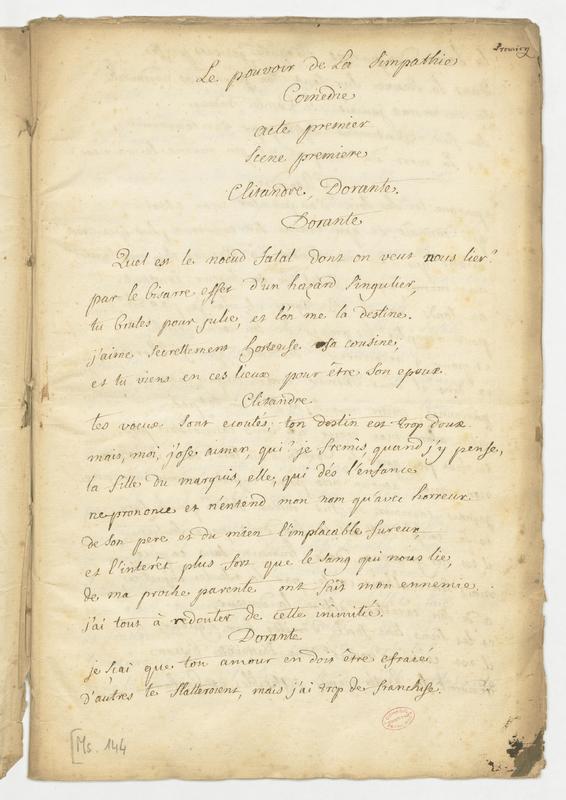 Le pouvoir de La Simpathie
Comedie
acte premier
Scene premiere
Clitandre, Dorante.
Dorante
Quel est le noeud fatal dont on veut nous lier?
par le bisarre effet d'un hazard singulier,
tu brules pour julie, et l'on me la destine.
j'aime secrettement hortense sa cousine,
et tu viens en ces lieux pour être son epoux.
Clitandre
tes voeux sont ecoutés; ton destin est trop doux
mais, moi, j'ose aimer, qui? je fremis, quand j'y pense,
la fille du marquis, elle, qui dés l'enfance
ne prononce et n'entend mon nom qu'avec horreur.
de son pere et du mien l'implacable fureur,
et l'interêt plus fort que le sang qui nous lie,
de ma proche parente ont fait mon ennemie.
j'ai tout à redouter de cette inimitié.
Dorante
je sçai que ton amour en doit être efraié
d'autres te flatteroient, mais j'ai trop de franchise.
[Ms. 144